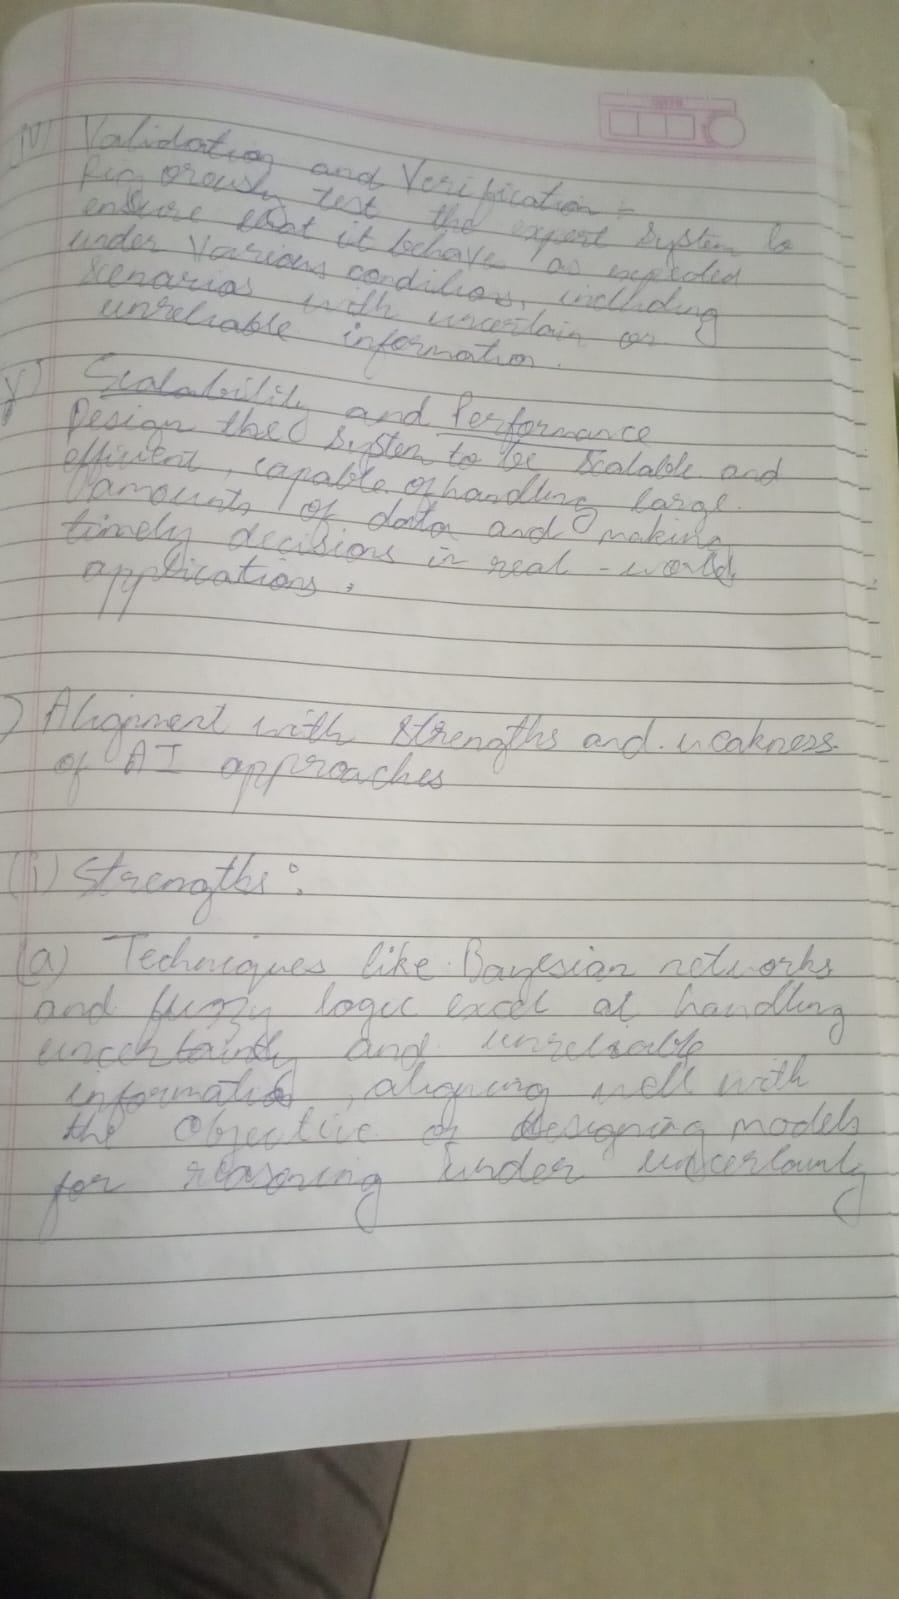 IV) Validation and Verification :-
Rigorously test the expert system to
ensure that it behave as expected
under various conditions, including
scenarios with uncertain or
unreliable information.
V) Scalability and Performance
Design the system to be scalable and
efficient, capable of handling large
amounts of data and making
timely decisions in real-world
applications.
) Alignment with strengths and weakness
of AI approaches
(i) Strengths :
(a) Techniques like Bayesian networks
and fuzzy logic excel at handling
uncertainty and unreliable
information, aligning well with
the objective of designing models
for reasoning under uncertainty